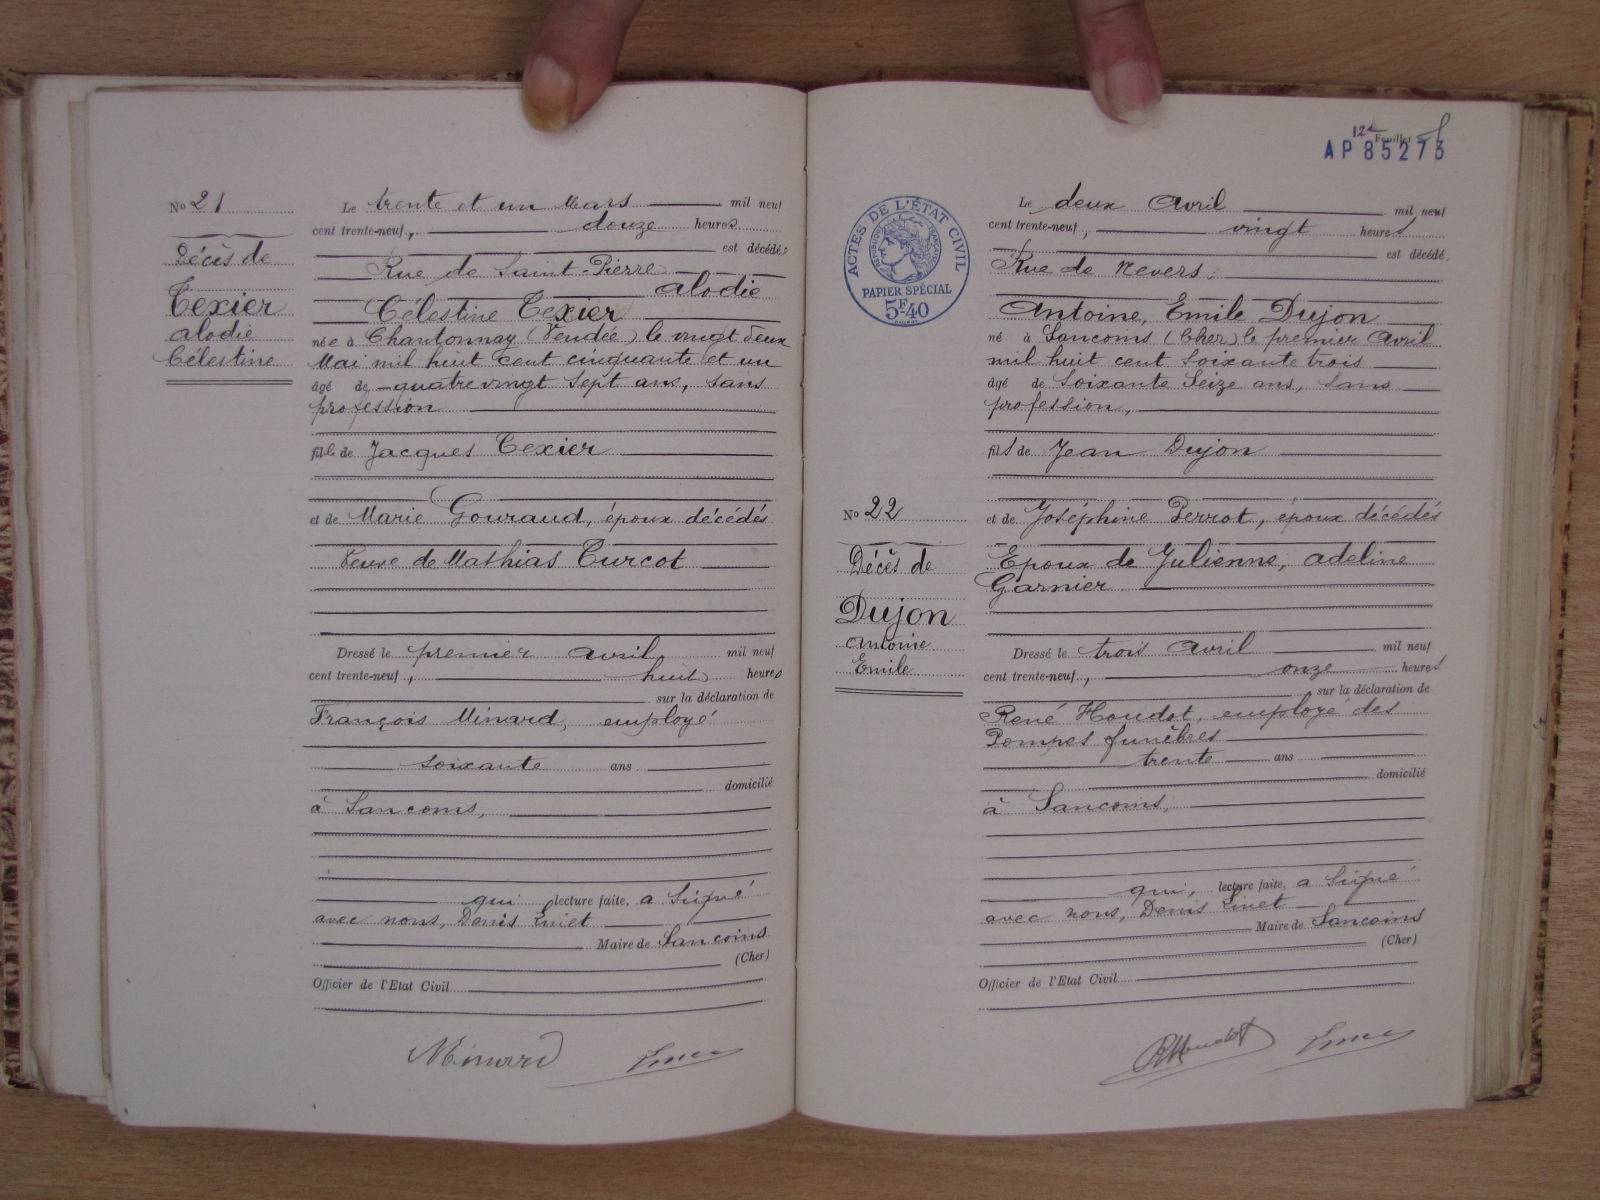 No 21
Décès de
Texier
alodie
Célestine
Le trente et un Mars mil neuf
cent trente-neuf, douze heures
est décédée
Rue de Saint-Pierre
alodie
Célestine Texier
née à Chantonnay (Vendée) le vingt deux
Mai mil huit cent cinquante et un
âgé de quatre vingt sept ans, sans
profession
fille de Jacques Texier
et de Marie Gouraud, époux décédés
Veuve de Mathias Turcot
Dressé le premier avril mil neuf
cent trente-neuf, huit heures
sur la déclaration de
François Minard, employé
soixante ans
domicilié
à Sancoins,
qui lecture faite, a Signé
avec nous, Denis Limet
Maire de Sancoins
(Cher)
Officier de l'Etat Civil
Minard
12e Feuillet
AP 85273
ACTES DE L'ÉTAT CIVIL
RÉPUBLIQUE FRANÇAISE
PAPIER SPÉCIAL
5F40
No 22
Décès de
Dujon
Antoine
Emile
Le deux Avril mil neuf
cent trente-neuf, vingt heures
est décédé
Rue de Nevers,
Antoine, Emile Dujon
né à Sancoins (Cher) le premier Avril
mil huit cent Soixante trois
âgé de Soixante Seize ans, sans
profession,
fils de Jean Dujon
et de Joséphine Perrot, époux décédés
Epoux de Julienne, adeline
Garnier
Dressé le trois Avril mil neuf
cent trente-neuf, onze heures
sur la déclaration de
René Houdot, employé des
Pompes funèbres
trente ans
domicilié
à Sancoins,
qui, lecture faite, a Signé
avec nous, Denis Limet
Maire de Sancoins
(Cher)
Officier de l'Etat Civil
RHoudot